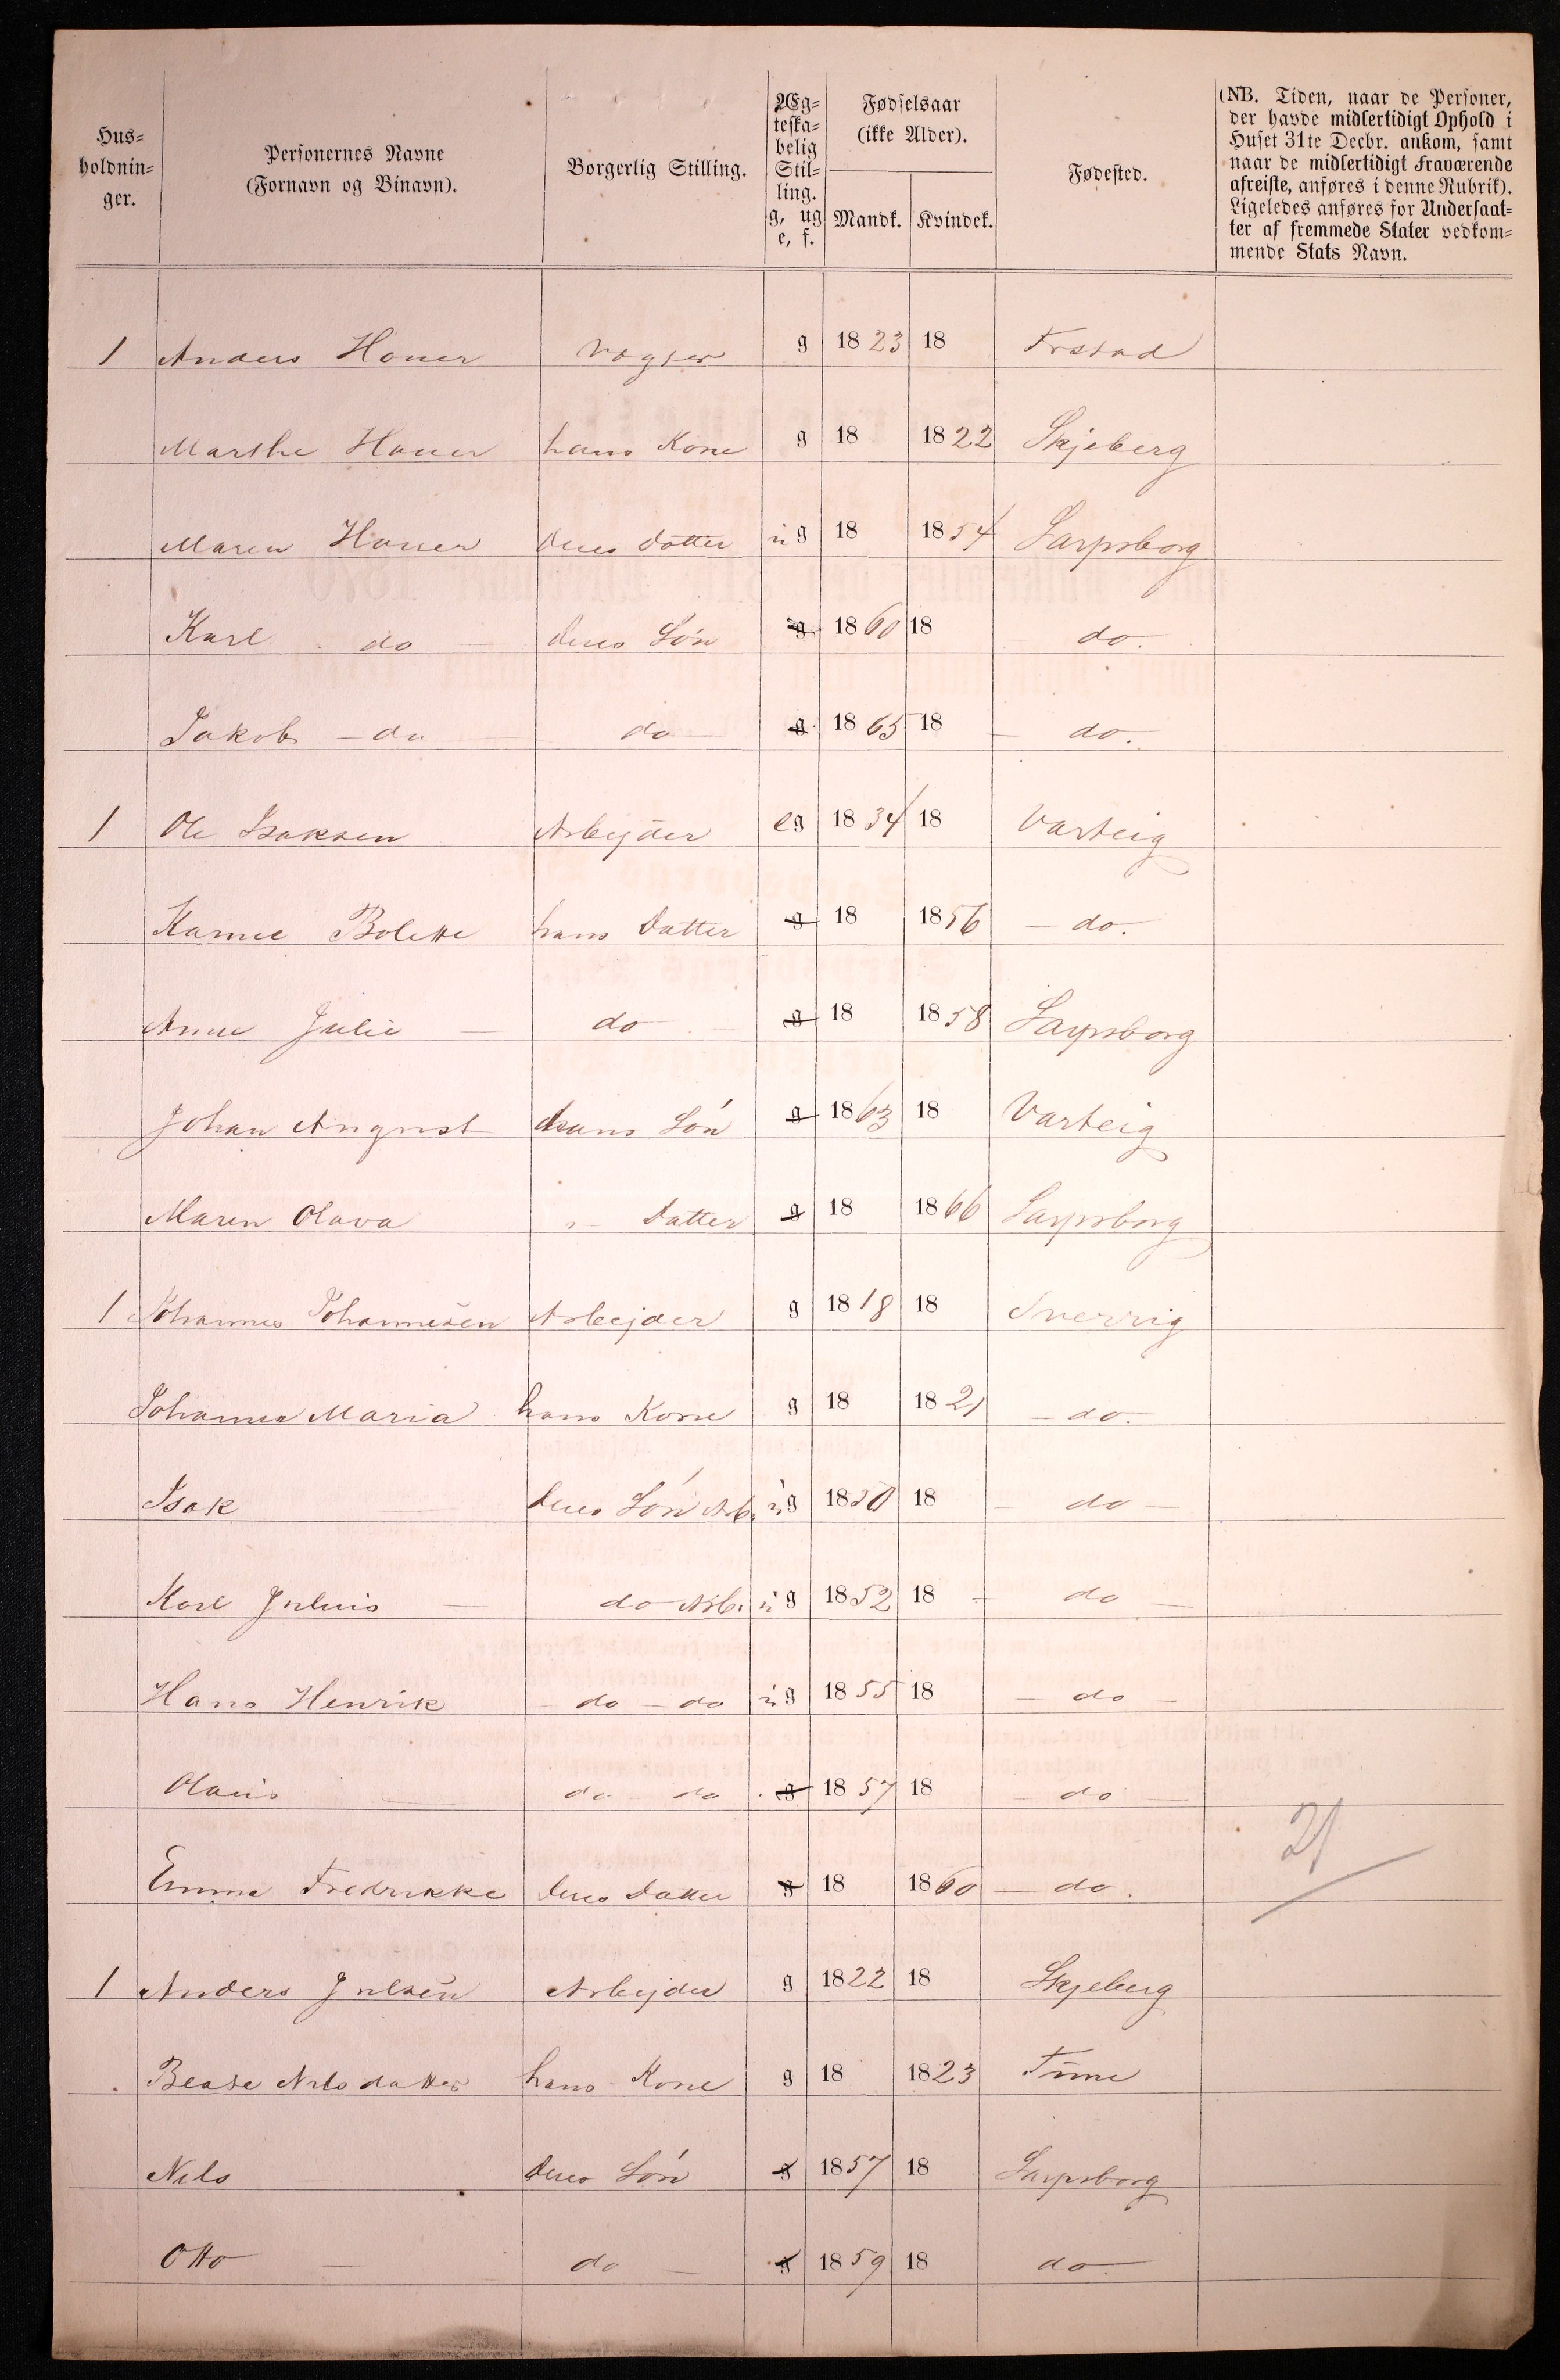 Hus-
holdnin-
ger.
Personernes Navne
(Fornavn og Binavn).
Borgerlig Stilling.
Æg-
teska-
belig
Stil-
ling.
g, ug
e, f.
Fødselsaar
(ikke Alder).
Mandk. Kvindek.
Fødested.
(NB. Tiden, naar de Personer,
der havde midlertidigt Ophold i
Huset 31te Decbr. ankom, samt
naar de midlertidigt Fraværende
afreiste, anføres i denne Rubrik).
Ligeledes anføres for Undersaat-
ter af fremmede Stater vedkom-
mende Stats Navn.
1 Anders g 1823 18
Marthe hans Kone g 18 1822 Skjeberg
Maren deres Datter ug 18 1854 Sarpsborg
Karl do deres Søn g 1860 18 do.
Jakob - do do g 1865 18 do.
1 Ole Isaksen Arbejder eg 1834 18 Varteig
Bolette hans Datter g 18 1856 - do.
Anne Julie do g 18 1858 Sarpsborg
Johan August hans Søn g 1863 18 Varteig
Maren Olava " Datter g 18 1866 Sarpsborg
1 Johannes Johannesen Arbejder g 1818 18 Sverrig
Johanna Maria hans Kone g 18 1821 - do.
Isak deres Søn Arb. ug 1850 18 - do -
Karl Julius - do Arb. ug 1852 18 - do -
Hans Henrik - do - do ug 1855 18 - do -
Olaus - do - do g 1857 18 - do -
Emma Fredrikke deres Datter g 18 1860 - do.
21
1 Anders Julsen Arbejder g 1822 18 Skjeberg
Beate Nilsdatter hans Kone g 18 1823 Tune
Nils deres Søn g 1857 18 Sarpsborg
Otto - do - g 1859 18 do